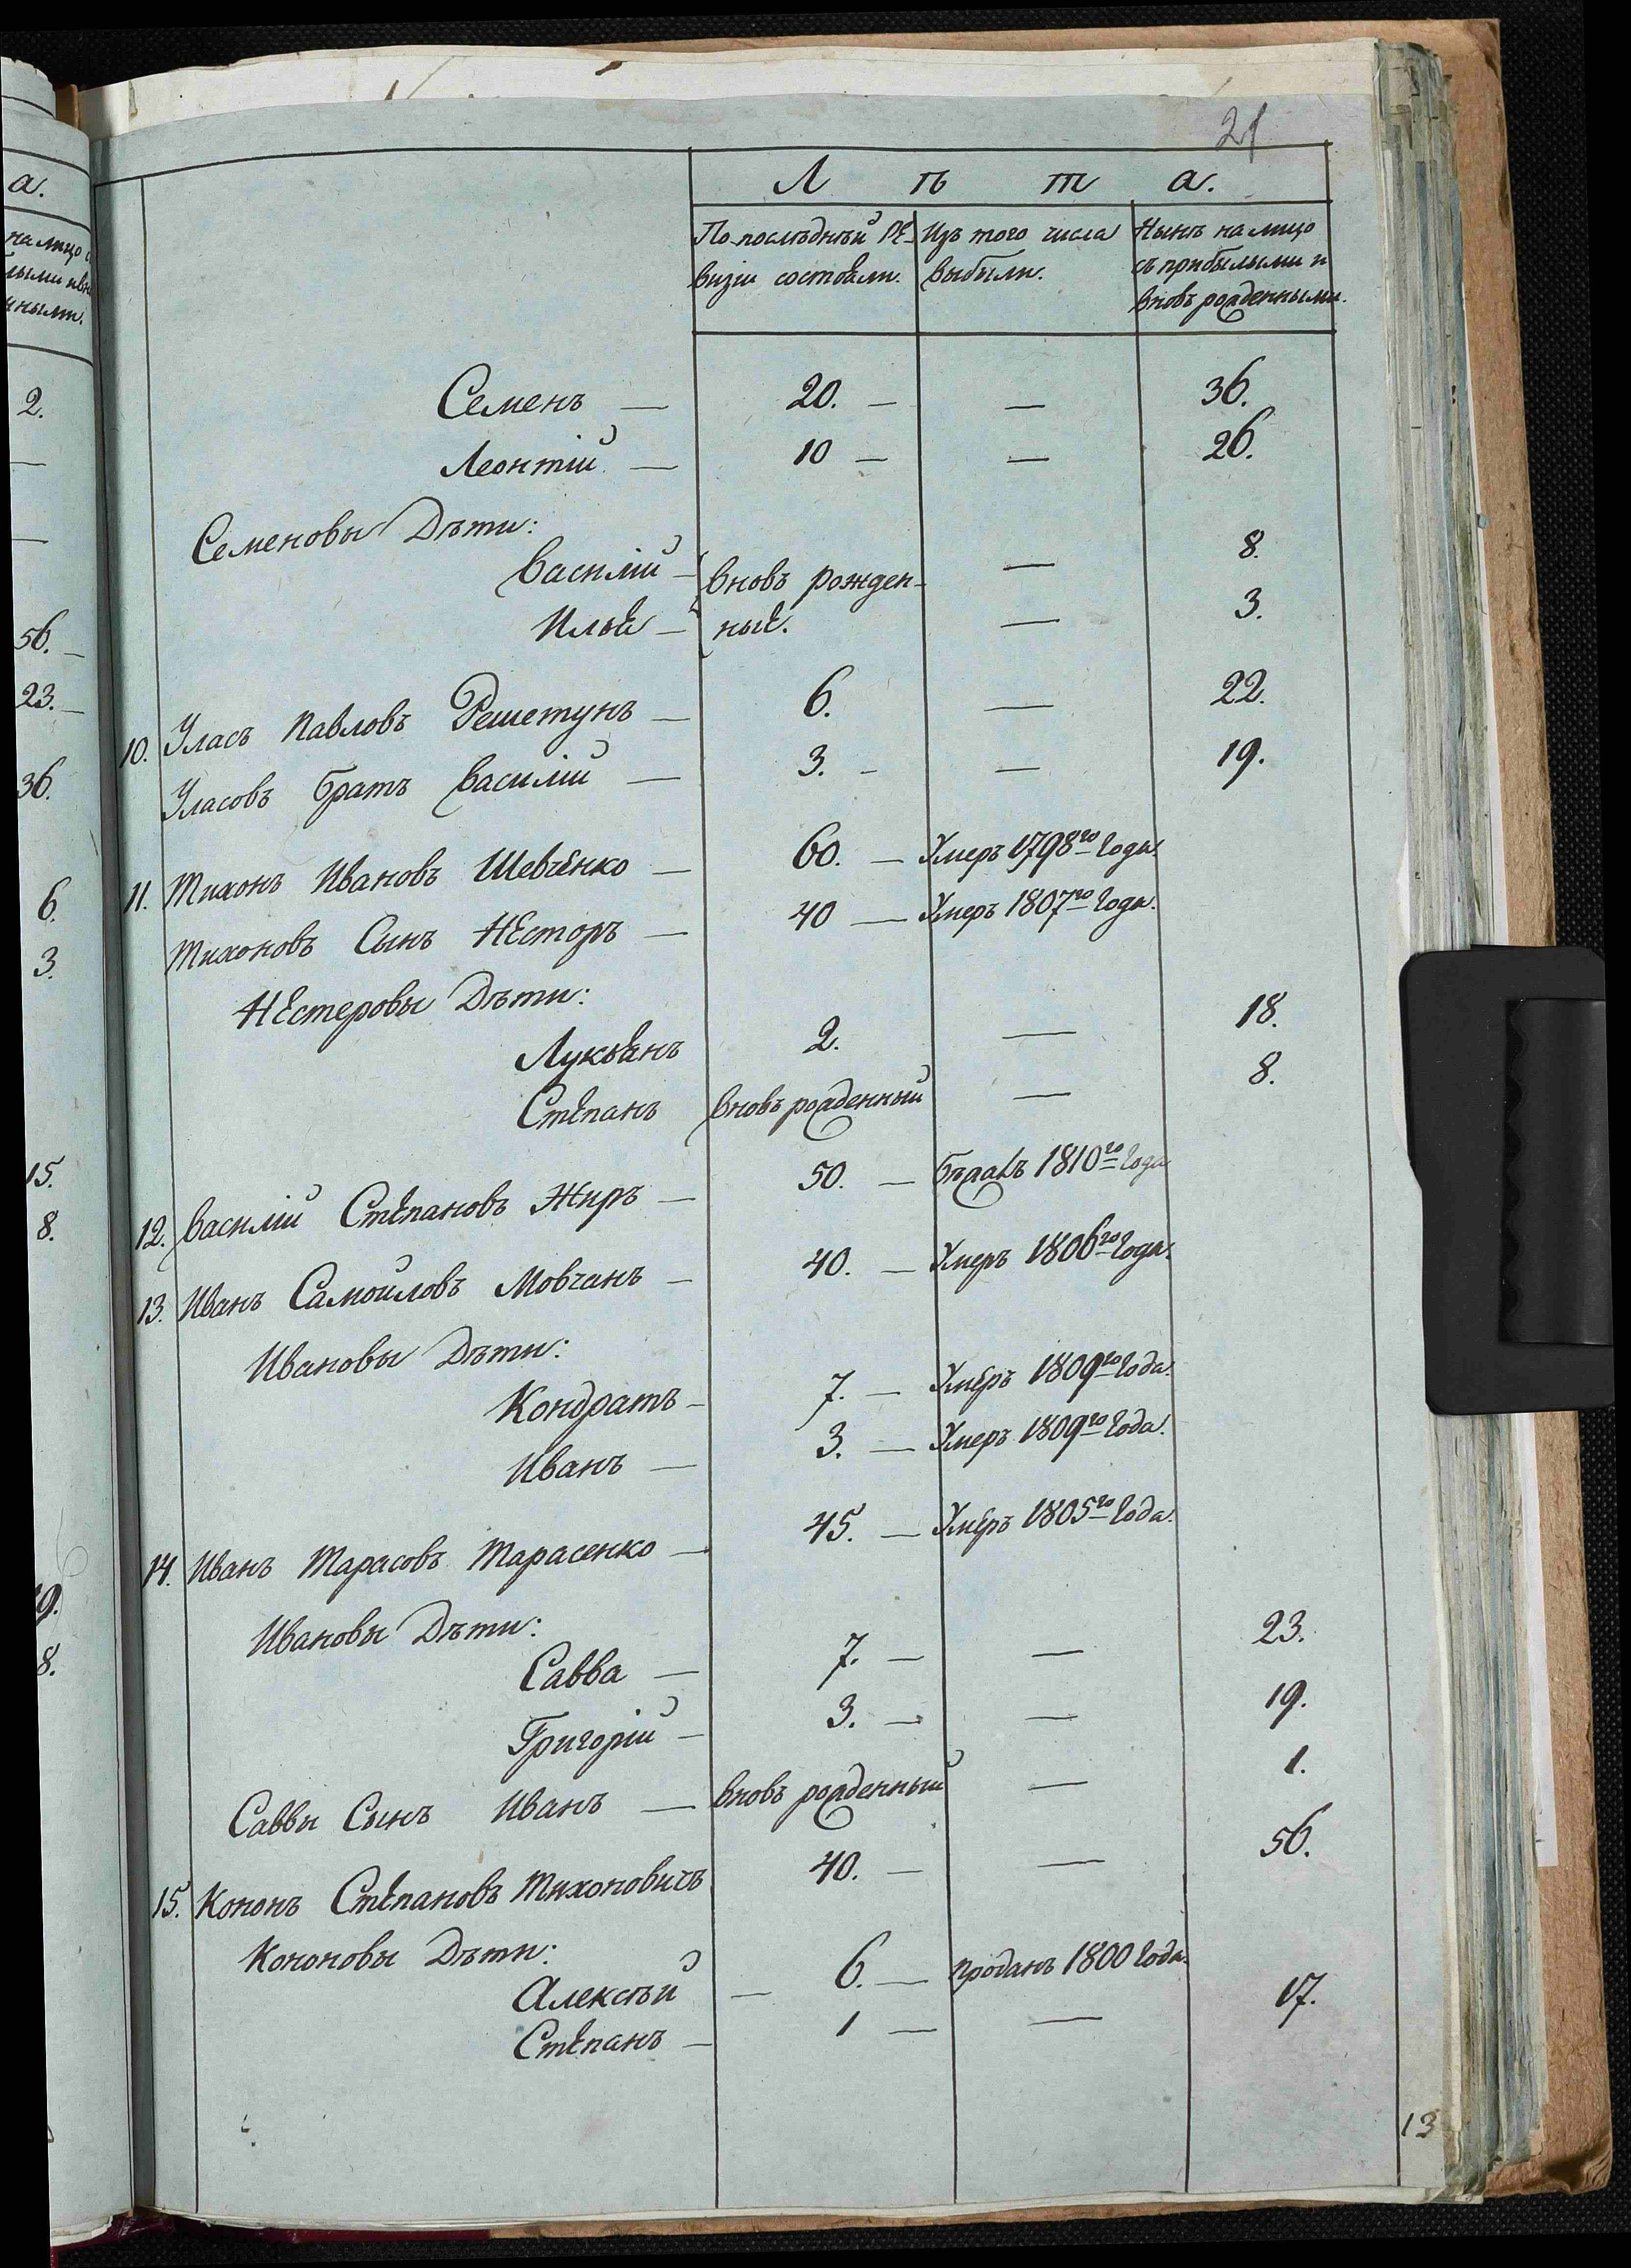 21
Лѣта.
По послѣдней Ре- Изъ того числа Нынѣ на лицо
визіи состояли. выбыли. съ прибылыми и
вновь рожденными.
Семенъ — 20. — — 36.
Леонтій — 10 — — 26.
Семеновы Дѣти:
Василій — вновь рожден- — 8.
Илья — ные. — 3.
10. Уласъ Павловъ Решетунъ — 6. — 22.
Уласовъ братъ Василій — 3. — — 19.
11. Тихонъ Ивановъ Шевченко — 60. — Умеръ 1798го Года.
Тихоновъ Сынъ Несторъ — 40 — Умеръ 1807го Года.
Нестеровы Дѣти:
Лукьянъ 2. — 18.
Степанъ вновь рожденный — 8.
12. Василій Степановъ Жиръ — 50. — Бѣжалъ 1810го Года
13. Иванъ Самойловъ Мовчанъ — 40. — Умеръ 1806го Года.
Ивановы Дѣти:
Кондратъ — 7. — Умеръ 1809го Года.
Иванъ — 3. — Умеръ 1809го Года.
14. Иванъ Тарасовъ Тарасенко — 45. — Умеръ 1805го Года.
Ивановы Дѣти:
Савва — 7. — — 23.
Григорій — 3. — — 19.
Саввы Сынъ Иванъ — вновь рожденный — 1.
15. Кононъ Степановъ Тихоновичъ 40. — — 56.
Кононовы Дѣти:
Алексѣй — 6. — Проданъ 1800 Года.
Степанъ — 1 — — 17.
13
а.
на лицо с
2.
56. —
23. —
36.
6.
3.
15.
8.
19.
8.